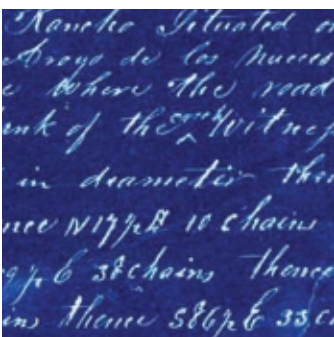 Rancho Situated o
Arroyo de los nueces
e where the road
ank of the creek Witnes
in diameter then
nce N 17½ E 10 chains
9½ E 38 chains thence
ins thence S 86½ E 33 c